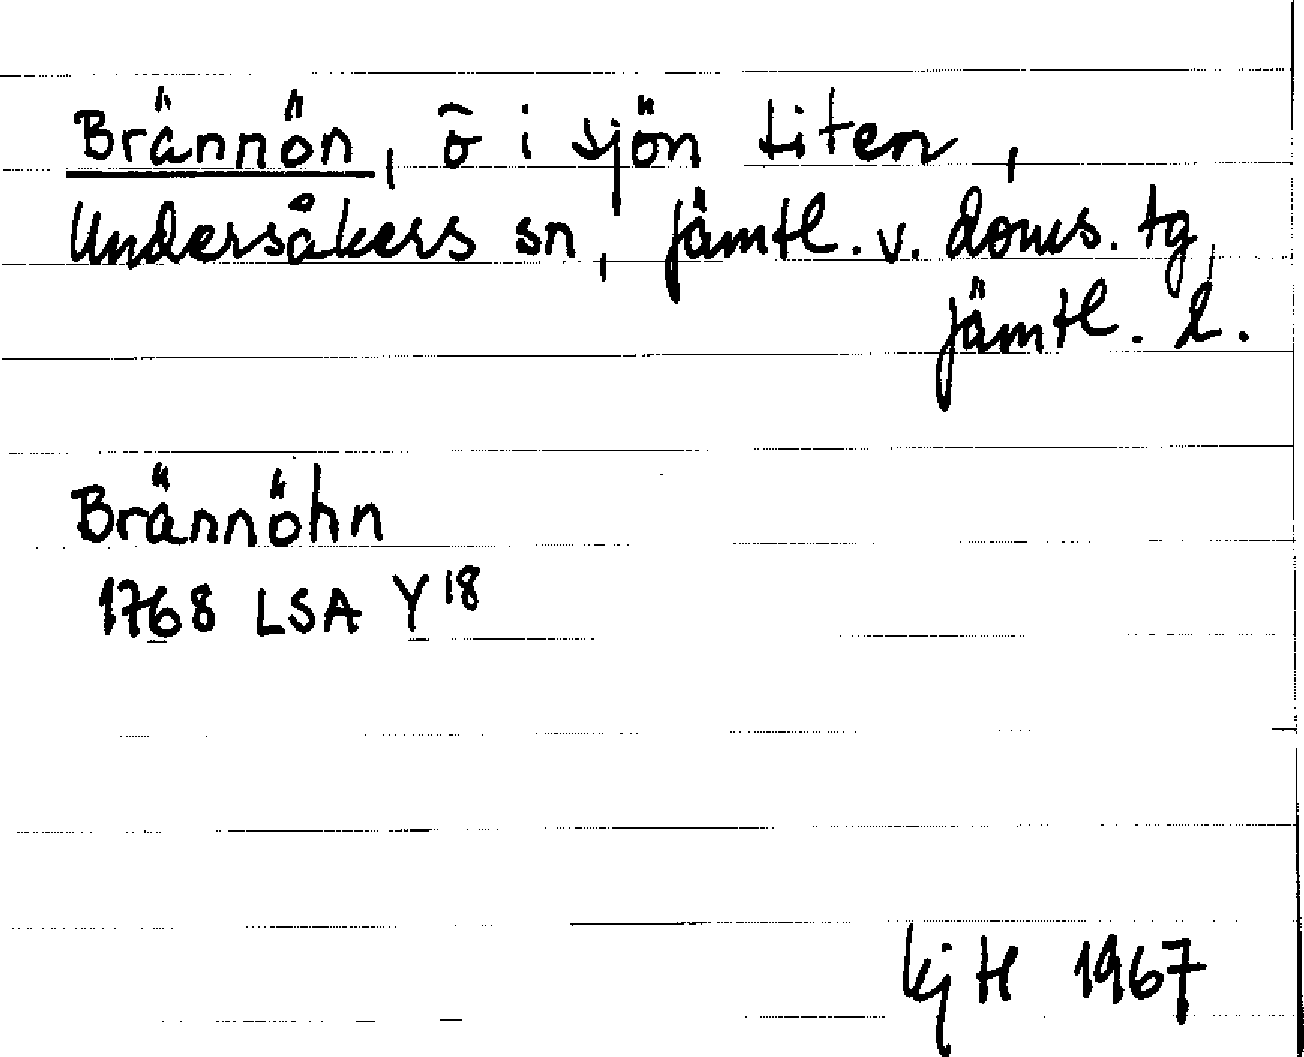 Brännön, ö i sjön Liten,
Undersåkers sn, Jämtl. v. doms. tg,
Jämtl. l.
Brännöhn
1768 LSA Y18
1967